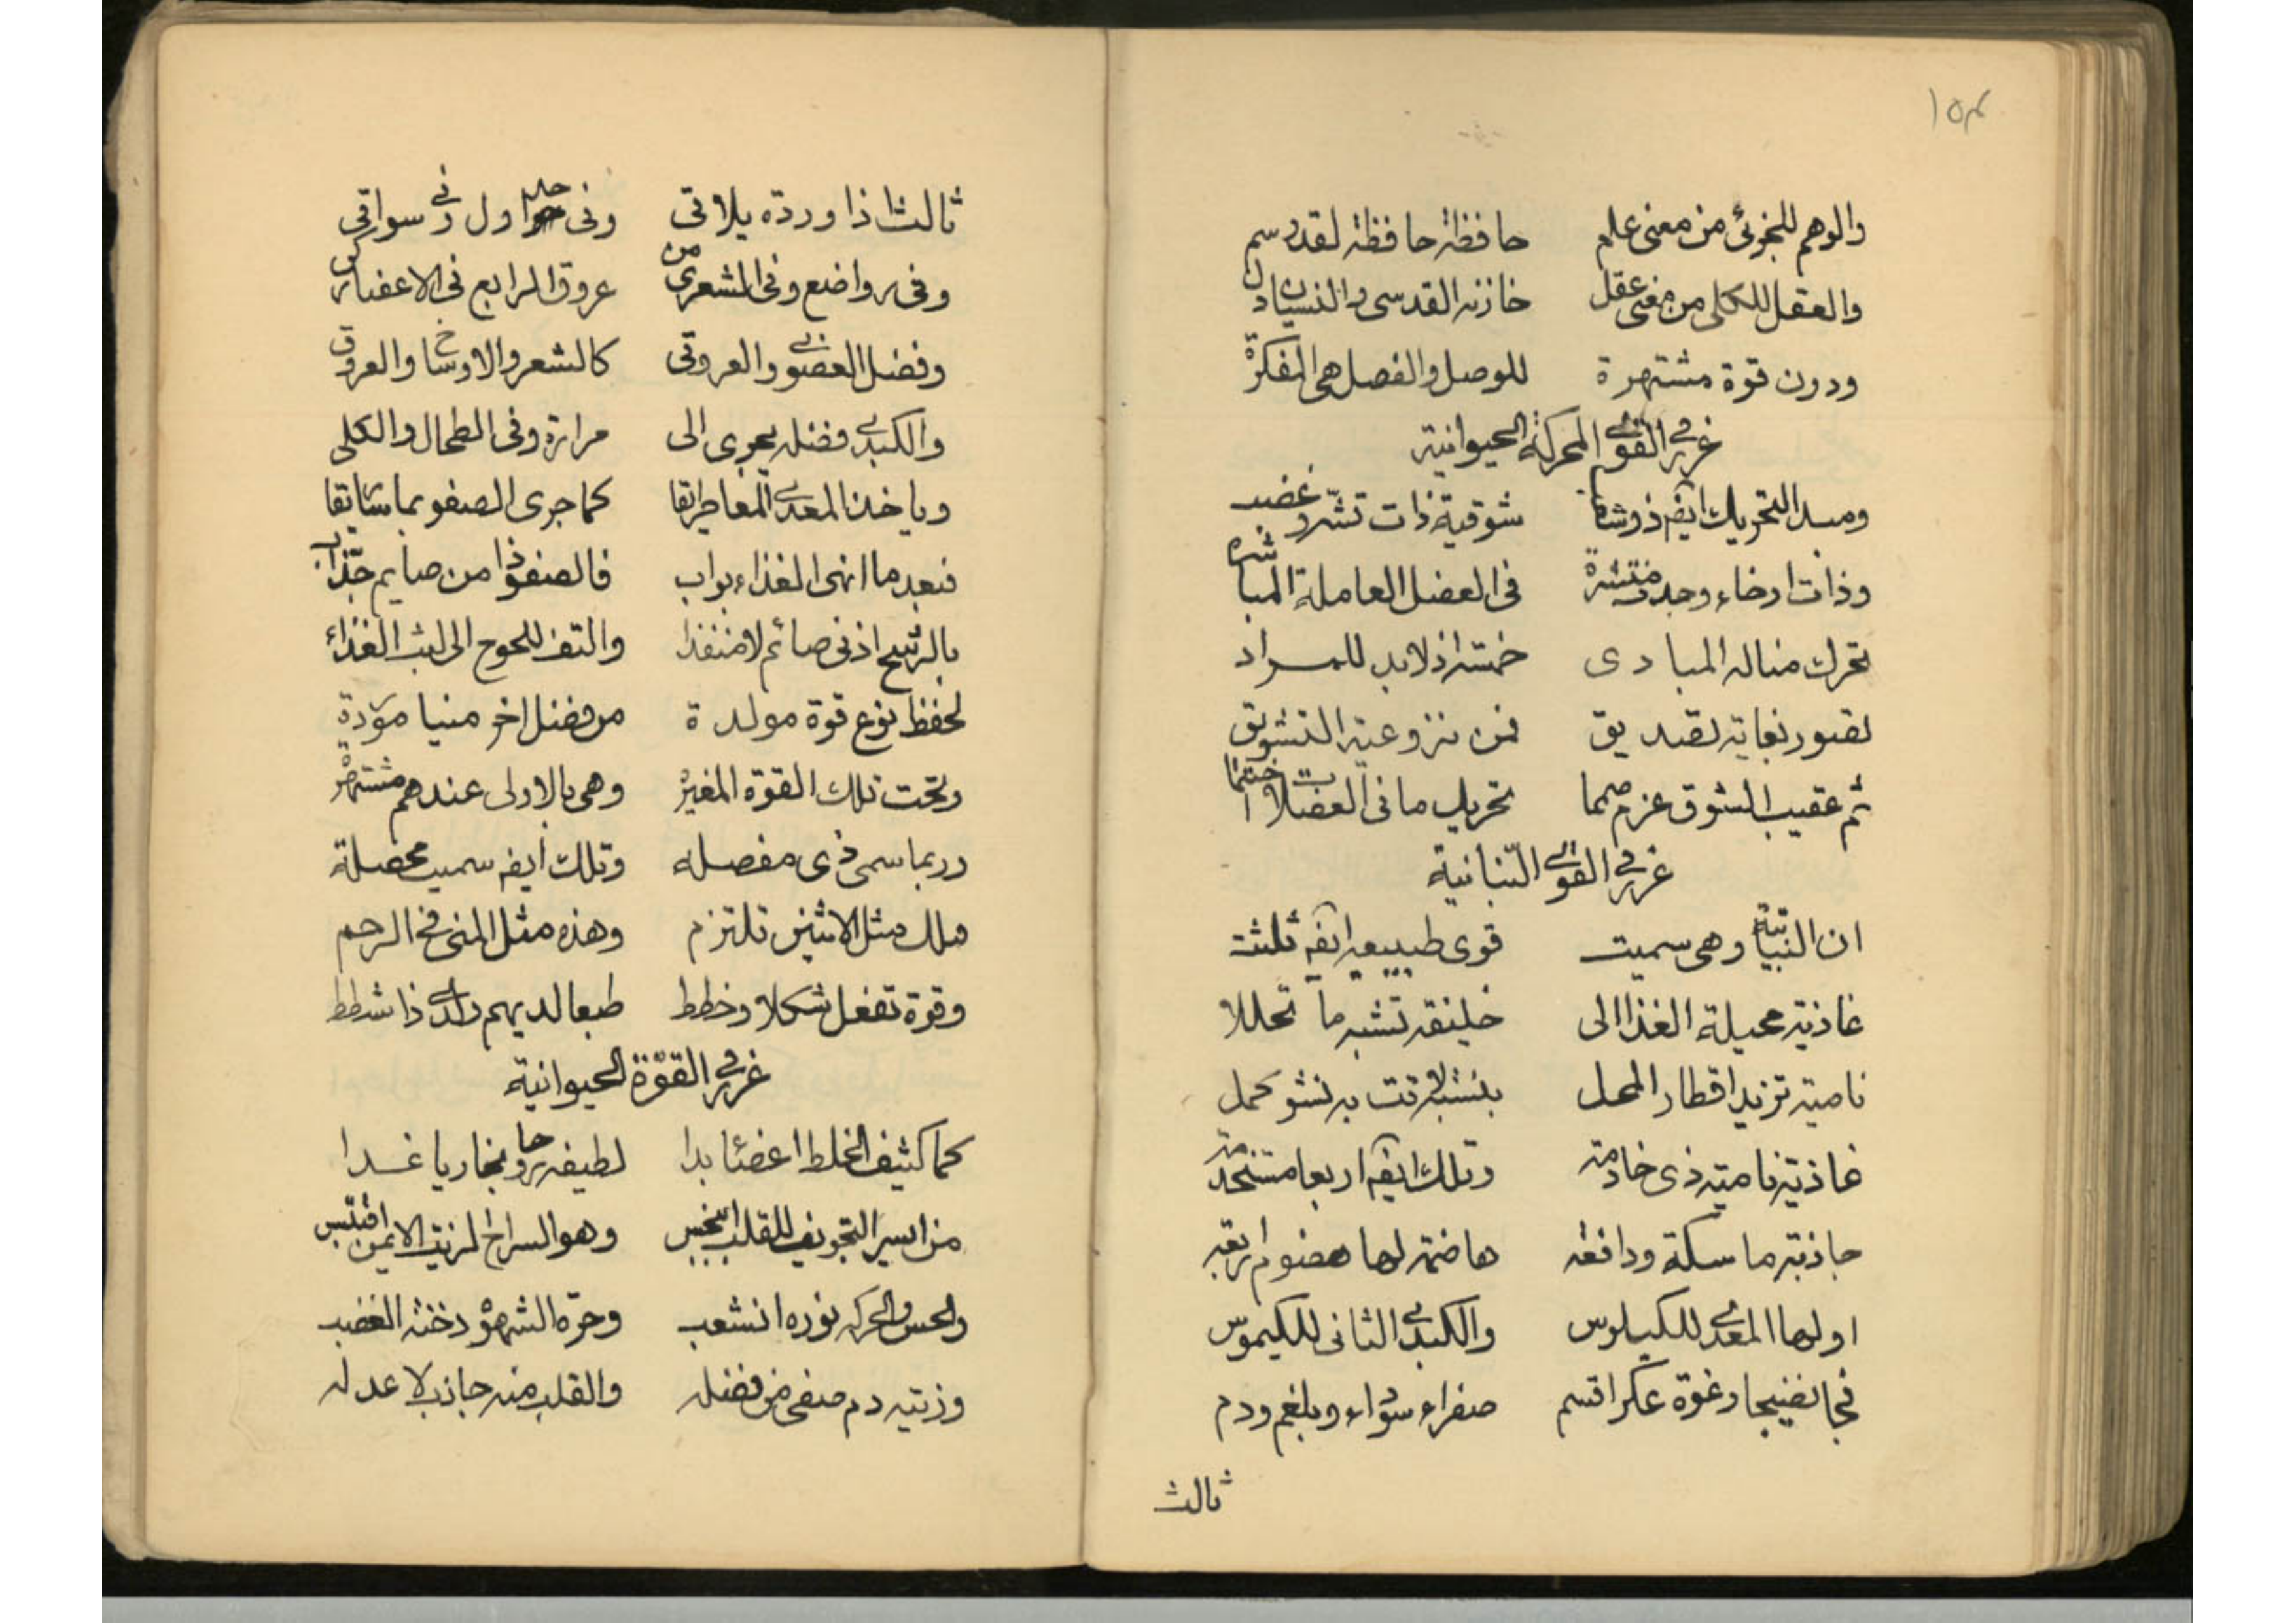 ١٥٣
والوهم للجزئى من معنى علم حافظة حافظة لقد رسم
والعقل للكلى من معنى عقل خازنه القدسى والنسيان دل
ودون قوة مشتهرة للوصل والفصل هى المفكرة
غرر فى القوى المحركة الحيوانية
ومبدء التحريك ايضا ذو شعب شوقية ذات تشه وغضب
وذات ارخاء وجذب منتشرة فى العضل العاملة المباشرة
تحرك مناله المبادى خمسة اذ لابد للمراد
تصور بغاية تصديق فمن نزوعية التشويق
ثم عقيب الشوق عزم صمما تحريك ما فى العضلات اختتما
غرر فى القوى النباتية
ان النباتية وهى سميت قوى طبيعيه ايضا ثلثت
غاذية محيلة الغذا الى خليفة تشبه ما تحللا
نامية تزيد اقطار المحل بنسبة لاقت به نشو كمل
غاذية نامية ذى خادمة وتلك ايضا اربعا مستخدمة
جاذبة ماسكة ودافعة هاضمة لها هضوم اربعة
اولها المعدى للكيلوس والكبدى الثانى للكيموس
فجا نضيجا رغوة عكرا قسم صفراء سوداء وبلغم ودم
ثالث
ثالث اذا وردة يلاقى وفى جداول وفى سواقى
وفى رواضع وفى الشعرى من عروق الرابع فى الاعضاء
وفضل العضوى والعروقى كالشعر والاوساخ والعروق
والكبدى فضله يجرى الى مرارة وفى الطحال والكلى
وياخذ المعدى المعا طرايقا كما جرى الصفو بماسايقا
فبعد ما انهى الغذاء بواب فالصفو ذا من صايم جذاب
بالرشح اذ فى صائم لا منفذا والتف للحوج الى لبث الغذاء
لحفظ نوع قوة مولدة من فضل اخر منيا مؤدة
وتحت تلك القوة المغيرة وهى بالاولى عندهم مشتهرة
وربما سمى ذى مفصله وتلك ايضا سميت محصلة
ملك مثل الانثيين تلتزم وهذه مثل المنى فى الرحم
وقوة تفعل شكلا وخطط طبعا لديهم رأى ذا شطط
غرر فى القوة الحيوانية
كما كثيف الخلط اعضئا بدا لطيفه روحا بخاريا غدا
من ايسر التجويف للقلب انبجس وهو السراج لزيت الايمن اقتبس
والحس والحركه نوره انشعب وحره الشهوة دخنه الغضب
وزيته دم صفى من فضله والقلب منه جاذب لا عدله